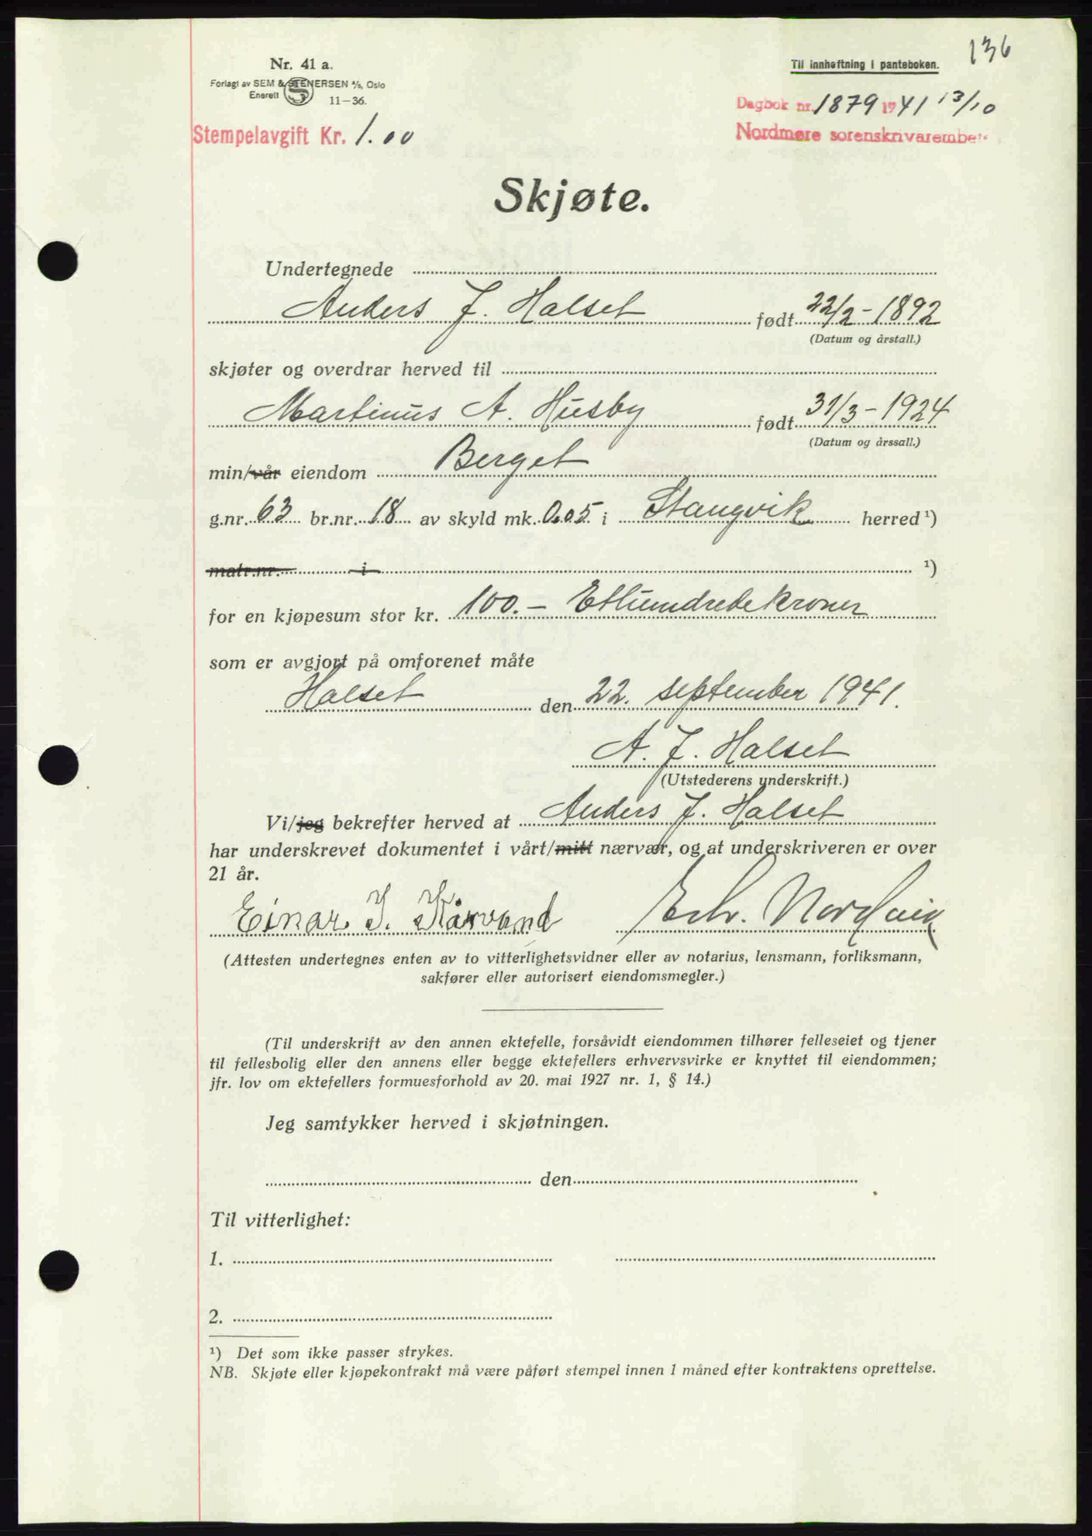 136
Nr. 41 a.
Til innheftning i panteboken.
Forlagt av SEM & STENERSEN A/S, Oslo
Enerett 11-36.
Dagbok nr. 1879 1941 13/10
Stempelavgift Kr. 1.00
Nordmøre sorenskrivarembe
Skjøte.
Undertegnede
Anders J. Halset født 22/2-1892
(Datum og årstall.)
skjøter og overdrar herved til
Martinus A. Husby født 31/3-1924
(Datum og årssall.)
min/vår eiendom Berget
g.nr. 63 br.nr. 18 av skyld mk. 0.05 i Stangvik herred ¹)
matr.nr. i ¹)
for en kjøpesum stor kr. 100.- Ethundredekroner
som er avgjort på omforenet måte
Halset den 22. september 1941.
A. J. Halset
(Utstederens underskrift.)
Vi/jeg bekrefter herved at Anders J. Halset
har underskrevet dokumentet i vårt/mitt nærvær, og at underskriveren er over
21 år.
Einar J. Kårvand Edv. Nordvik
(Attesten undertegnes enten av to vitterlighetsvidner eller av notarius, lensmann, forliksmann,
sakfører eller autorisert eiendomsmegler.)
(Til underskrift av den annen ektefelle, forsåvidt eiendommen tilhører felleseiet og tjener
til fellesbolig eller den annens eller begge ektefellers erhvervsvirke er knyttet til eiendommen;
jfr. lov om ektefellers formuesforhold av 20. mai 1927 nr. 1, § 14.)
Jeg samtykker herved i skjøtningen.
den
Til vitterlighet:
1.
2.
¹) Det som ikke passer strykes.
NB. Skjøte eller kjøpekontrakt må være påført stempel innen 1 måned efter kontraktens oprettelse.